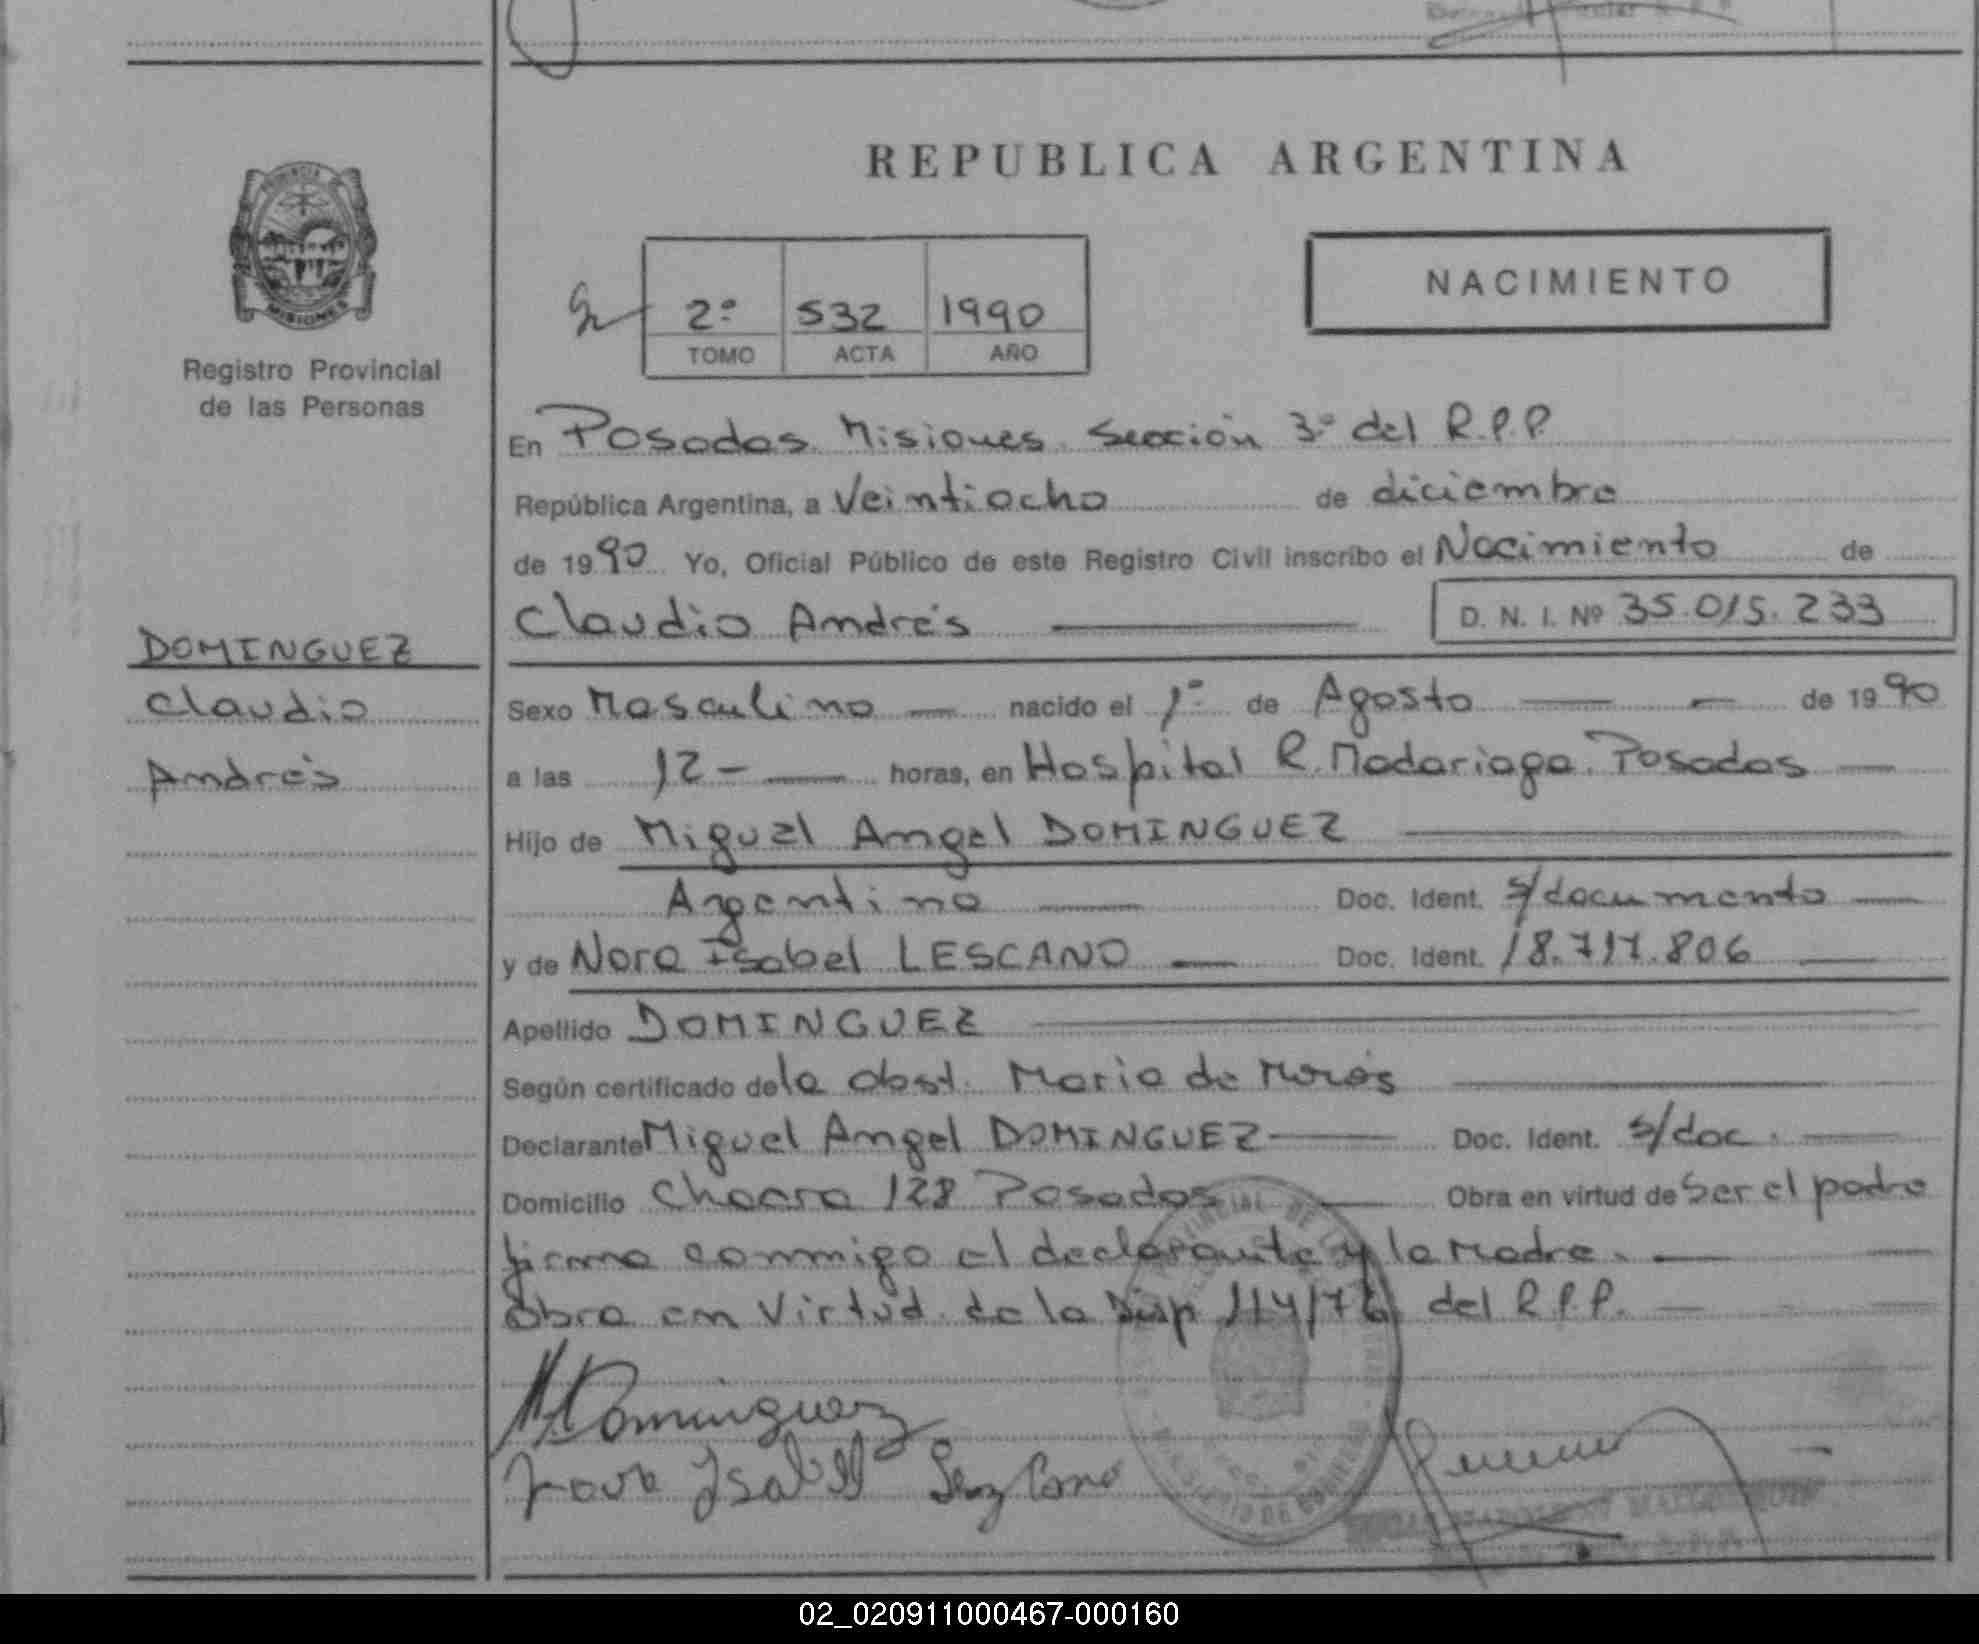 REPUBLICA ARGENTINA
NACIMIENTO
2º 532 1990
TOMO ACTA AÑO
MISIONES
Registro Provincial
de las Personas
En Posadas Misiones Sección 3º del R.P.P
República Argentina, a Veintiocho de diciembre
de 1990 Yo, Oficial Público de este Registro Civil inscribo el Nacimiento de
Claudio Andrés D. N. I. Nº 35.015.233
DOMINGUEZ
Claudio
Andrés
Sexo Masculino — nacido el 1º de Agosto — — de 1990
a las 12 - — horas, en Hospital R. Madariaga. Posadas —
Hijo de Miguel Angel DOMINGUEZ
Argentino — Doc. Ident. s/documento —
y de Nora Isabel LESCANO — Doc. Ident. 18.717.806 —
Apellido DOMINGUEZ
Según certificado de la obst. Maria de
Declarante Miguel Angel DOMINGUEZ — Doc. Ident. s/doc. —
Domicilio Chacra 128 Posadas — Obra en virtud de Ser el padre
firma conmigo el declarante y la Madre. —
Obra en Virtud de la Disp 114/76 del R.P.P. —
M Dominguez
02_020911000467-000160